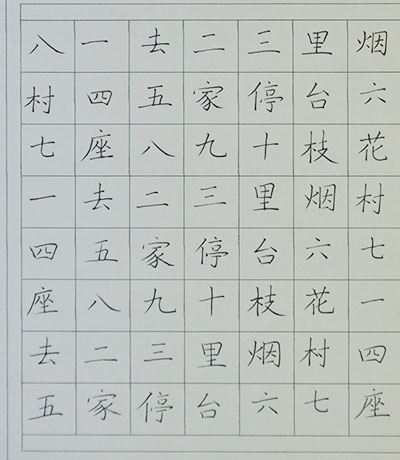 八一去二三里烟
村四五家停台六
七座八九十枝花
一去二三里烟村
四五家停台六七
座八九十枝花一
去二三里烟村四
五家停台六七座